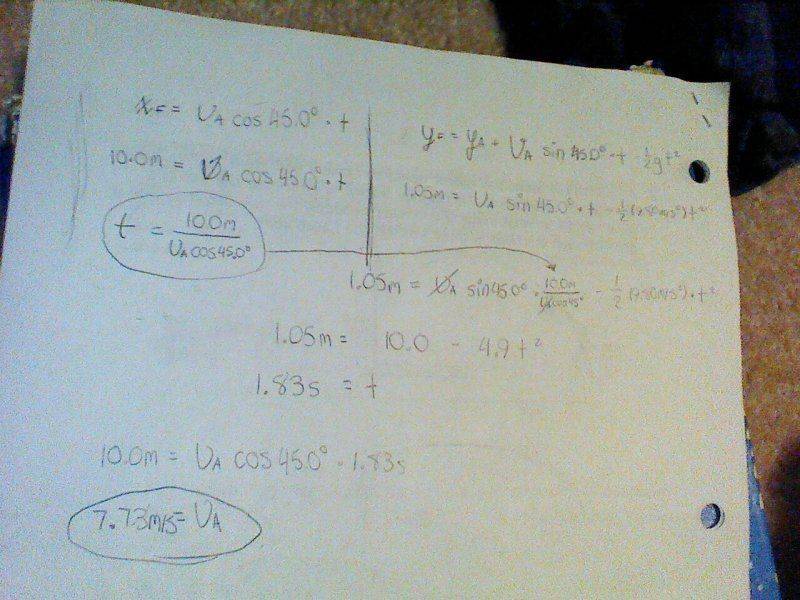 x_F = v_A cos 45.0° · t
10.0m = v_A cos 45.0° · t
t = 10.0m / v_A cos 45.0°
y_F = y_A + v_A sin 45.0° · t - 1/2 g t²
1.05m = v_A sin 45.0° · t - 1/2 (9.80m/s²) t²
1.05m = v_A sin 45.0° · 10.0m / v_A cos 45° - 1/2 (9.80m/s²) · t²
1.05m = 10.0 - 4.9 t²
1.83s = t
10.0m = v_A cos 45.0° · 1.83s
7.73m/s = v_A